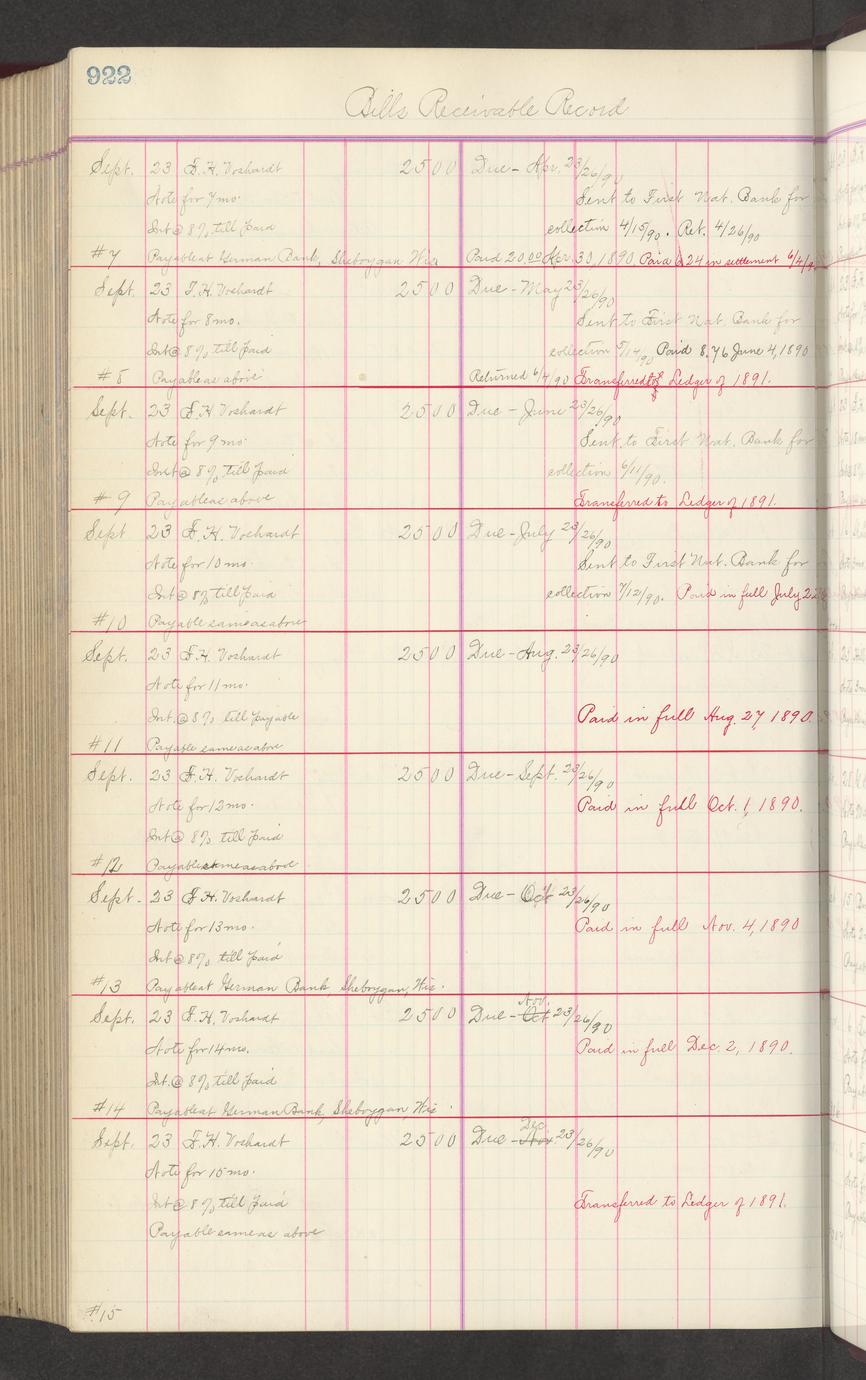 922
Bills Receivable Record
Sept. 23 F. H. Voshardt 2500 Due - Apr. 23/26/90
Note for 7 mo. Sent to First Nat. Bank for
Int @ 8% till paid collection 4/15/90. Ret. 4/26/90
#7 Payable at German Bank, Sheboygan Wis Paid 20.00 Apr. 30, 1890 Paid 6.24 in settlement 6/4/90
Sept. 23 F. H. Voshardt 2500 Due - May 23/26/90
Note for 8 mo. Sent to First Nat. Bank for
Int @ 8% till paid collection 5/14/90 Paid 8.76 June 4, 1890
#8 Payable as above Returned 6/4/90 Transferred to Ledger of 1891.
Sept. 23 F. H. Voshardt 2500 Due - June 23/26/90
Note for 9 mo. Sent to First Nat. Bank for
Int @ 8% till paid collection 6/11/90.
#9 Payable as above Transferred to Ledger of 1891.
Sept 23 F. H. Voshardt 2500 Due - July 23/26/90
Note for 10 mo. Sent to First Nat. Bank for
Int @ 8% till paid collection 7/12/90. Paid in full July
#10 Payable same as above
Sept. 23 F. H. Voshardt 2500 Due - Aug. 23/26/90
Note for 11 mo.
Int. @ 8% till payable Paid in full Aug. 27, 1890.
#11 Payable same as above
Sept. 23 F. H. Voshardt 2500 Due - Sept. 23/26/90
Note for 12 mo. Paid in full Oct. 1, 1890.
Int @ 8% till paid
#12 Payable same as above
Sept. 23 F. H. Voshardt 2500 Due - Oct 23/26/90
Note for 13 mo. Paid in full Nov. 4, 1890
Int @ 8% till paid
#13 Payable at German Bank, Sheboygan, Wis.
Nov.
Sept. 23 F. H. Voshardt 2500 Due - Oct 23/26/90
Note for 14 mo. Paid in full Dec. 2, 1890.
Int. @ 8% till paid
#14 Payable at German Bank, Sheboygan, Wis.
Dec
Sept. 23 F. H. Voshardt 2500 Due - Nov 23/26/90
Note for 15 mo.
Int @ 8% till paid Transferred to Ledger of 1891.
Payable same as above
#15